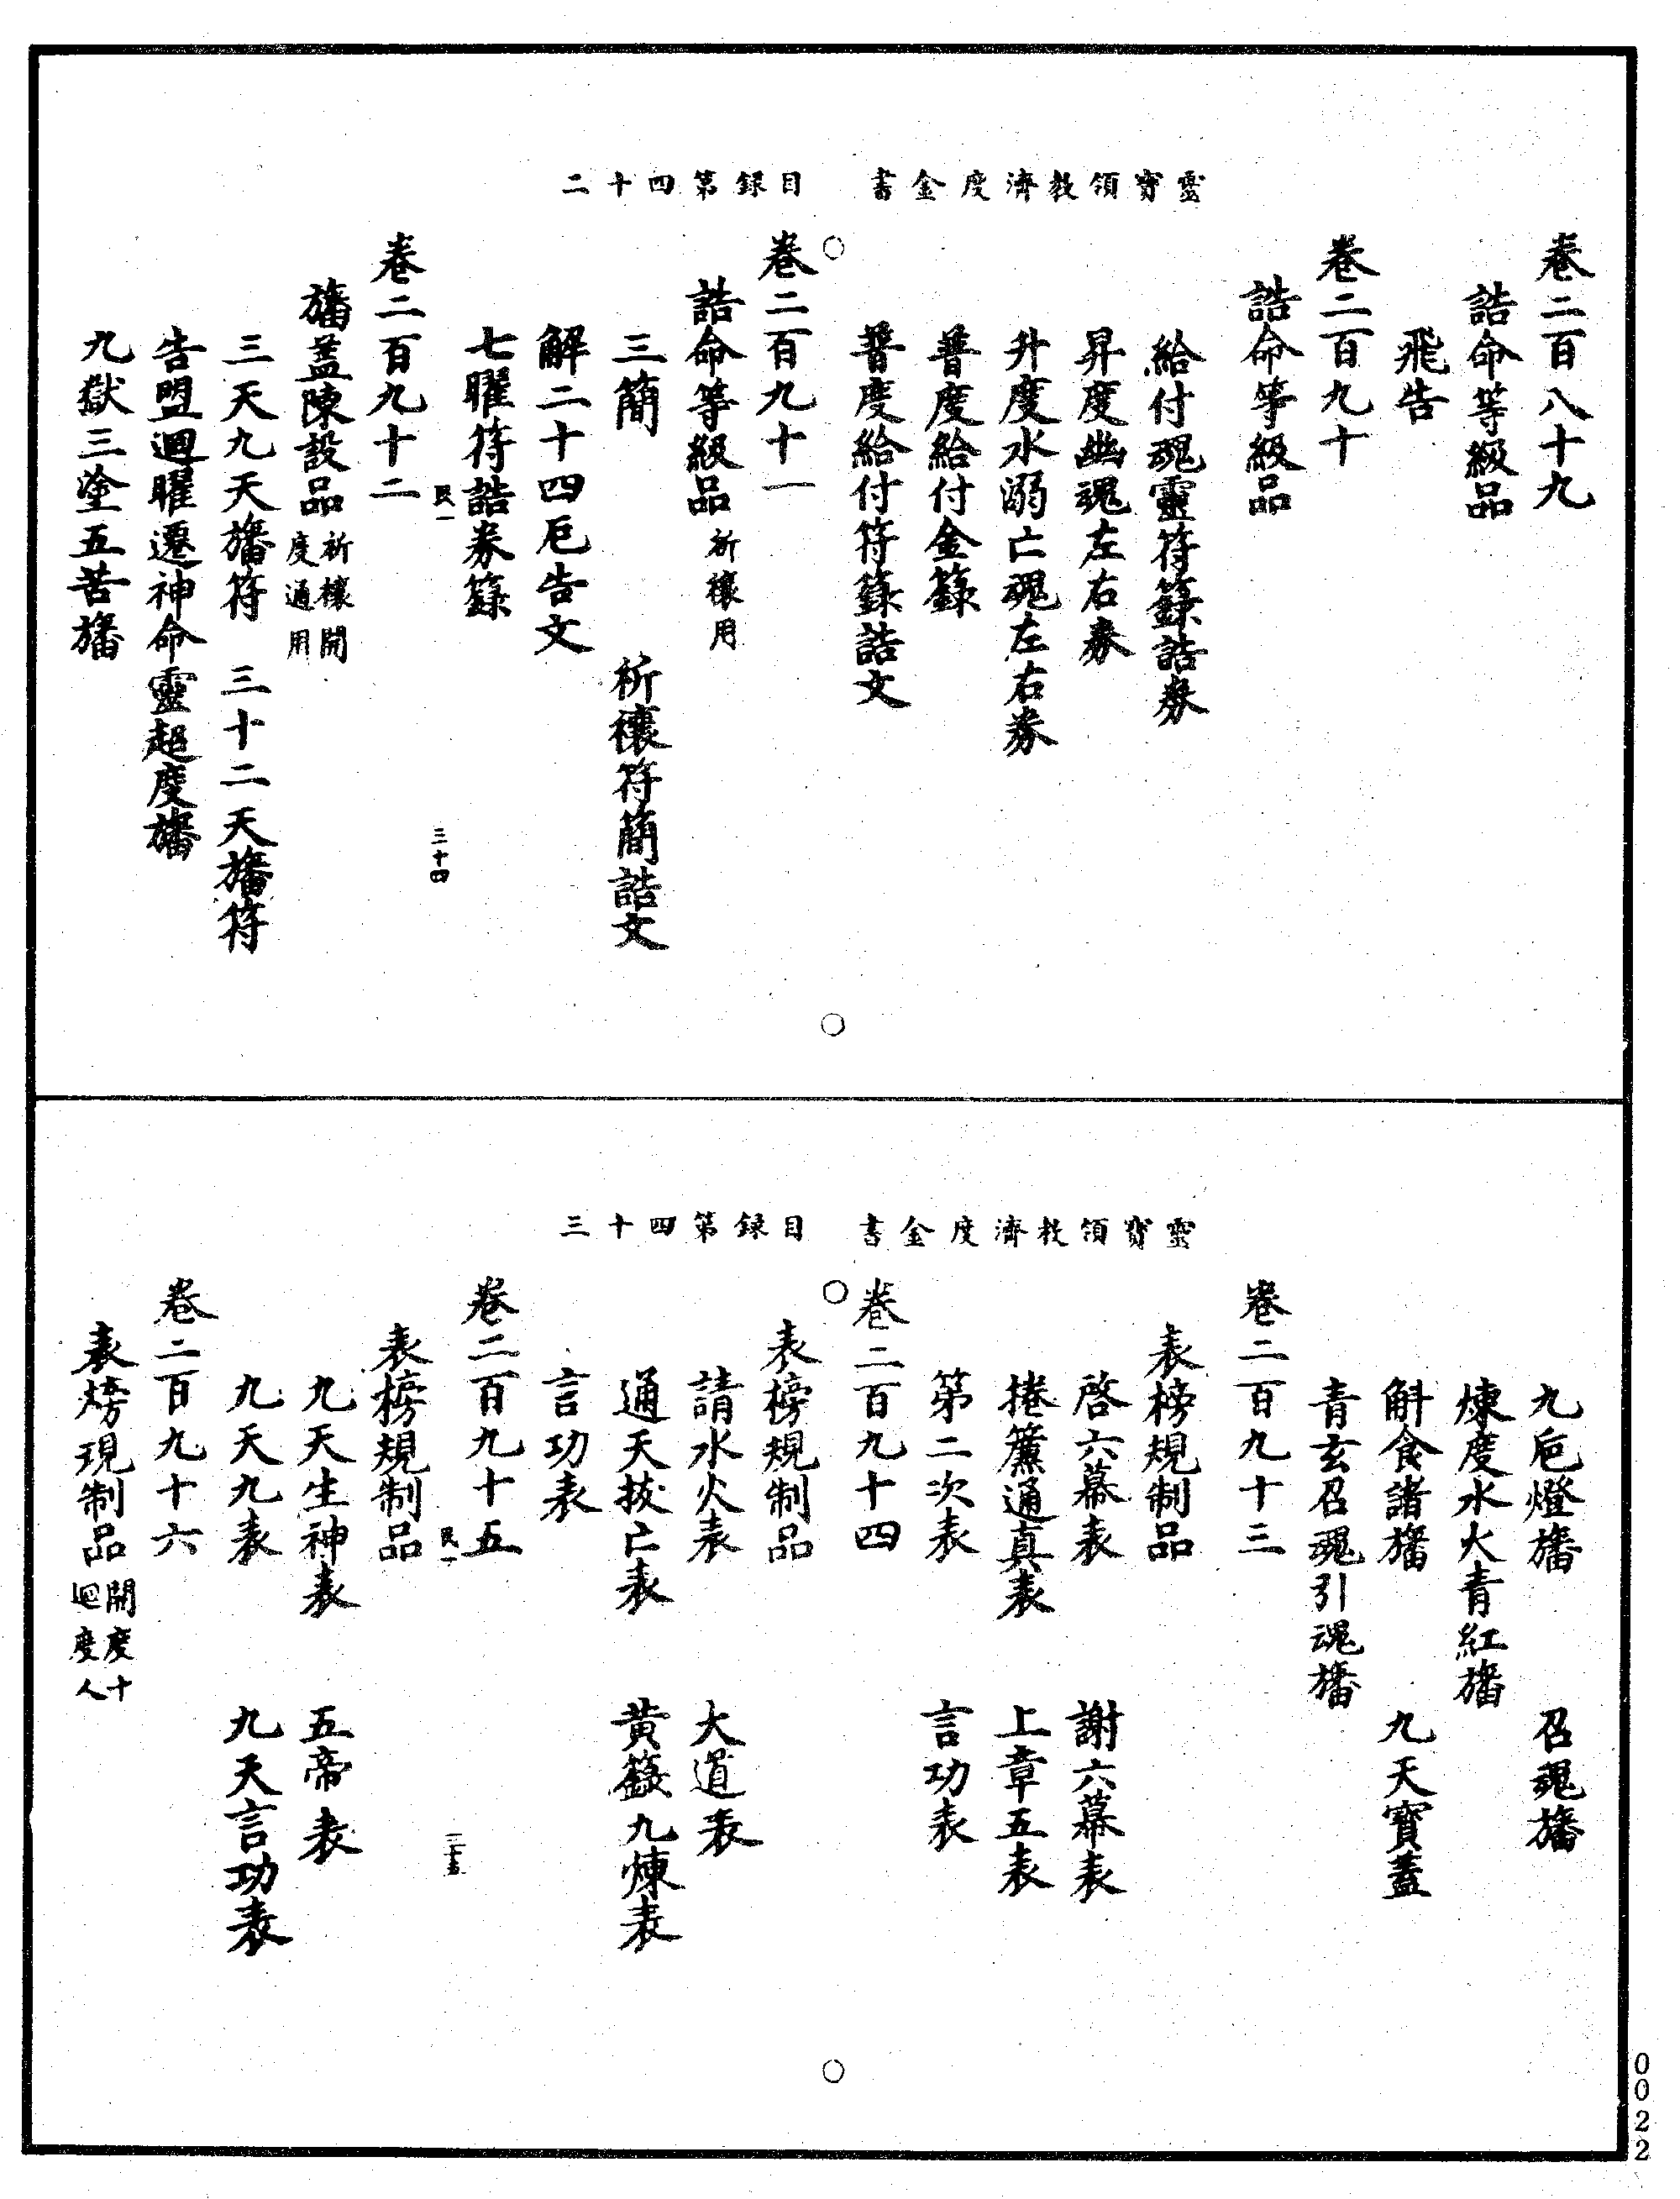 靈寶領教濟度金書　目録第四十二
卷二百八十九
誥命等級品
飛告
卷二百九十
誥命等級品
給付魂靈符籙誥劵
昇度幽魂左右劵
升度水溺亡魂左右劵
普度給付金籙
普度給付符籙誥文
卷二百九十一
誥命等級品 祈禳用
三簡　祈禳符簡誥文
解二十四厄告文
七曜符誥劵籙
民一　三十四
卷二百九十二
旛蓋陳設品 祈禳開度通用
三天九天旛符　三十二天旛符
告盟迴曜遷神命靈超度旛
九獄三塗五苦旛
靈寶領教濟度金書　目録第四十三
九巵燈旛　召魂旛
煉度水火青紅旛
斛食諸旛　九天寶蓋
青玄召魂引魂旛
卷二百九十三
表榜規制品
啓六幕表　謝六幕表
捲簾通真表　上章五表
第二次表　言功表
卷二百九十四
表榜規制品
請水火表　大道表
通天拔亡表　黄籙九煉表
言功表
卷二百九十五
民一　三十五
表榜規制品
九天生神表　五帝表
九天九表　九天言功表
卷二百九十六
表榜現制品 開度十迴度人
0022